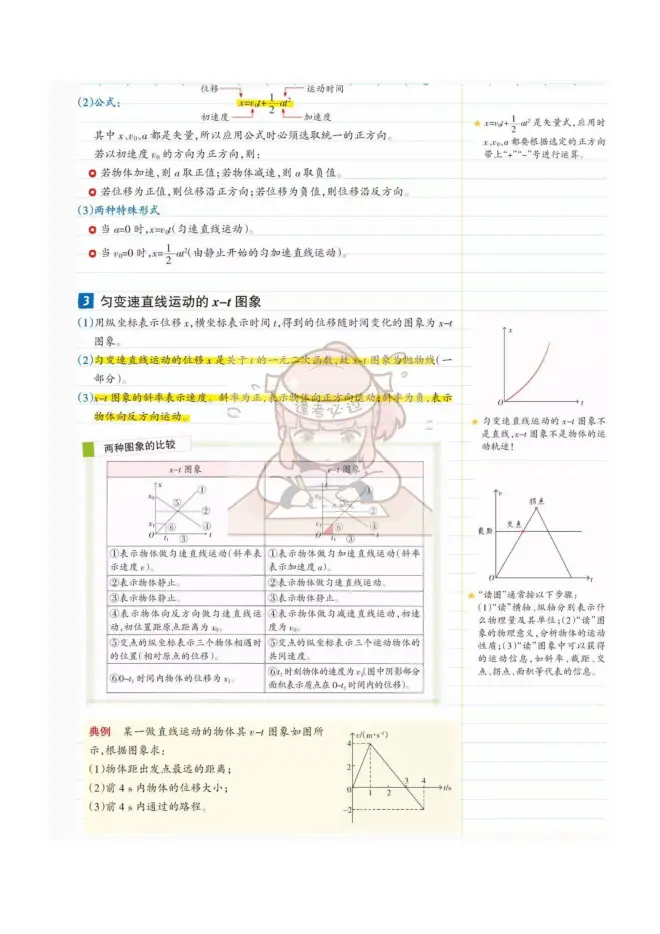 位移 运动时间
(2)公式: x=v₀t+½at²
初速度 加速度
其中 x、v₀、a 都是矢量,所以应用公式时必须选取统一的正方向。
若以初速度 v₀ 的方向为正方向,则:
若物体加速,则 a 取正值;若物体减速,则 a 取负值。
若位移为正值,则位移沿正方向;若位移为负值,则位移沿反方向。
(3)两种特殊形式
当 a=0 时,x=v₀t(匀速直线运动)。
当 v₀=0 时,x=½at²(由静止开始的匀加速直线运动)。
x=v₀t+½at² 是矢量式,应用时
x、v₀、a 都要根据选定的正方向
带上“+”“-”号进行运算。
3 匀变速直线运动的 x-t 图象
(1)用纵坐标表示位移 x,横坐标表示时间 t,得到的位移随时间变化的图象为 x-t
图象。
(2)匀变速直线运动的位移 x 是关于 t 的一元二次函数,故 x-t 图象为抛物线(一
部分)。
(3)x-t 图象的斜率表示速度。斜率为正,表示物体向正方向运动;斜率为负,表示
物体向反方向运动。
x
O t
匀变速直线运动的 x-t 图象不
是直线,x-t 图象不是物体的运
动轨迹!
逢考必过
两种图象的比较
x-t 图象 v-t 图象
x x₀ x₁ O t₁ t ① ② ③ ④ ⑤ ⑥
v v₀ v₁ O t₁ t ① ② ③ ④ ⑤ ⑥
①表示物体做匀速直线运动(斜率表
示速度 v)。
①表示物体做匀加速直线运动(斜率
表示加速度 a)。
②表示物体静止。
②表示物体做匀速直线运动。
③表示物体静止。
③表示物体静止。
④表示物体向反方向做匀速直线运
动,初位置距原点距离为 x₀。
④表示物体做匀减速直线运动,初速
度为 v₀。
⑤交点的纵坐标表示三个物体相遇时
的位置(相对原点的位移)。
⑤交点的纵坐标表示三个运动物体的
共同速度。
⑥0~t₁ 时间内物体的位移为 x₁。
⑥t₁ 时刻物体的速度为 v₁(图中阴影部分
面积表示质点在 0~t₁ 时间内的位移)。
v
拐点
交点
截距
O t
“读图”通常按以下步骤:
(1)“读”横轴、纵轴分别表示什
么物理量及其单位;(2)“读”图
象的物理意义,分析物体的运动
性质;(3)“读”图象中可以获得
的运动信息,如斜率、截距、交
点、拐点、面积等代表的信息。
典例 某一做直线运动的物体其 v-t 图象如图所
示,根据图象求:
(1)物体距出发点最远的距离;
(2)前 4 s 内物体的位移大小;
(3)前 4 s 内通过的路程。
v/(m·s⁻¹)
4
2
0 1 2 3 4 t/s
-2